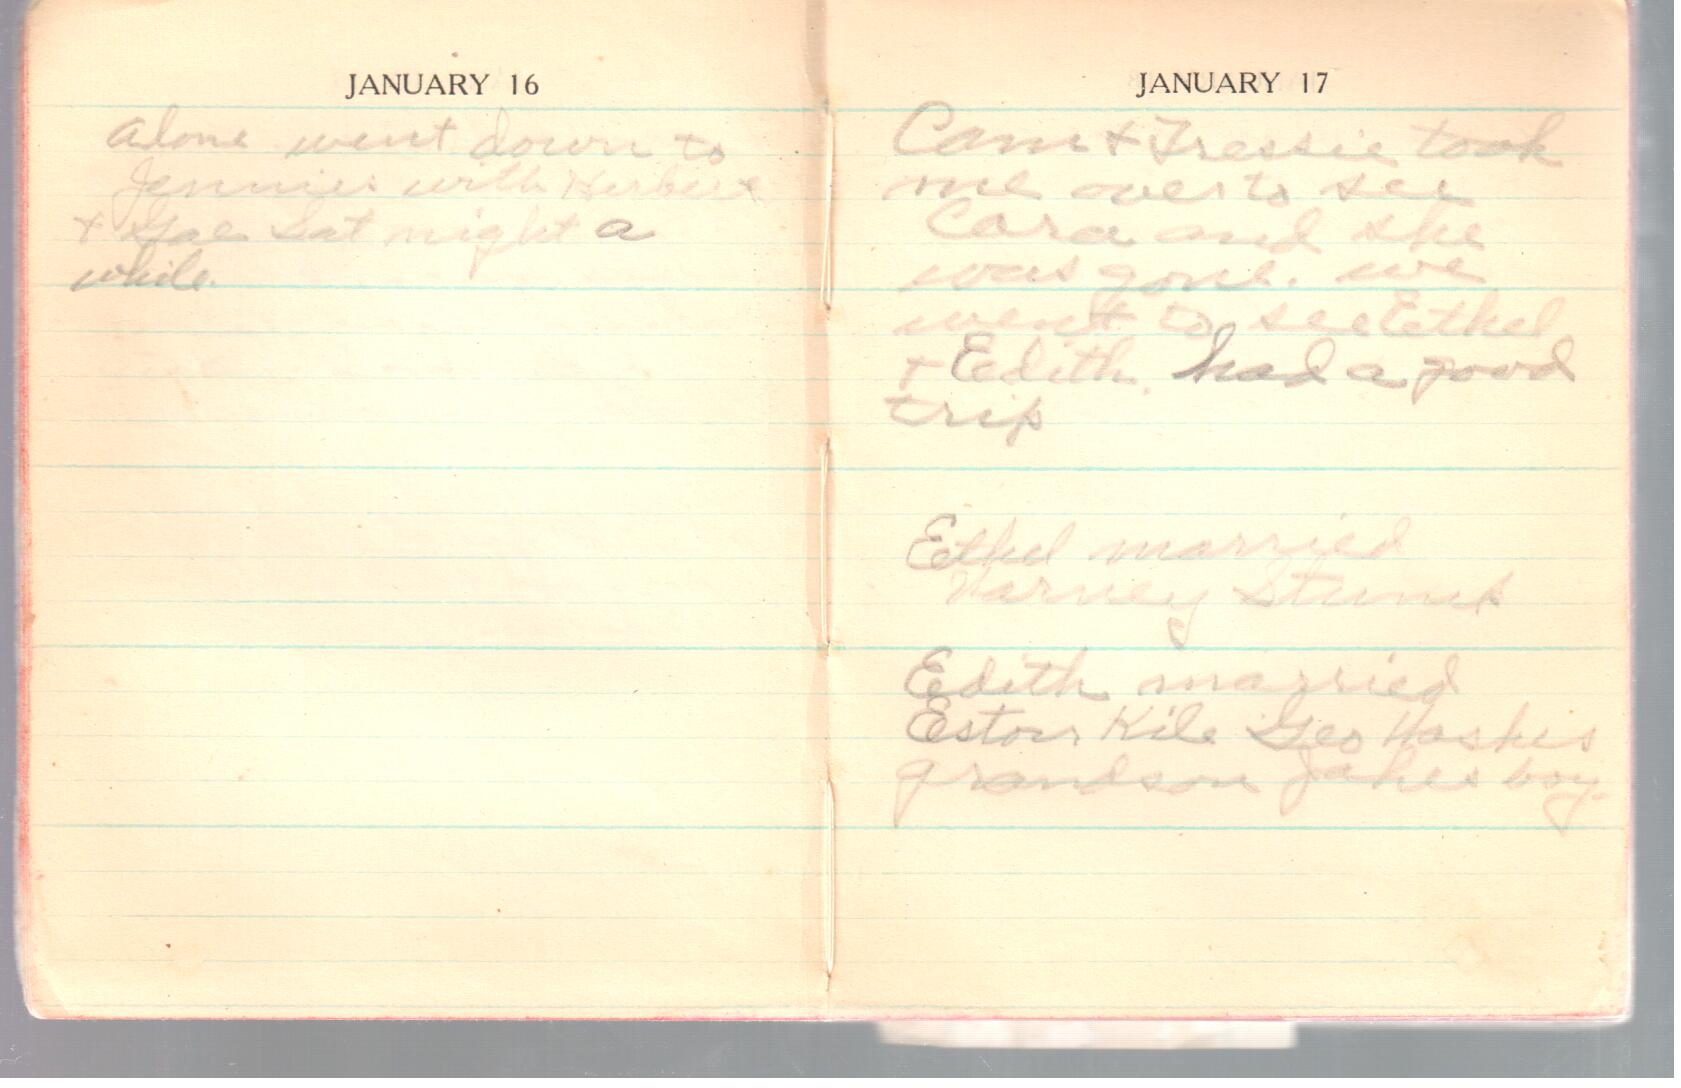 JANUARY 16
alone went down to
Jennies with Herbert
+ Gae Sat night a
while.
JANUARY 17
Cam + Tressie took
me over to see
Cora and she
was gone. we
went to see Ethel
+ Edith. had a good
trip
Ethel married
Harney Stump
Edith married
Kile Geo
grandson Jakes boy.